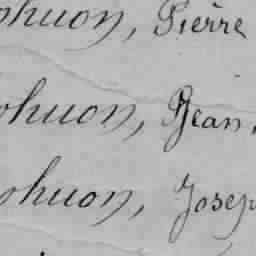 ohuon, Pierre
ohuon, Jean,
ohuon, Josep